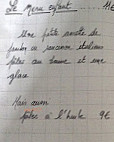 Le menu enfant ..... 11€
Une petite assiette de
jambon ou saucisson italiens
pâtes au beurre et une
glace
Mais aussi
pâtes à l'huile 9€